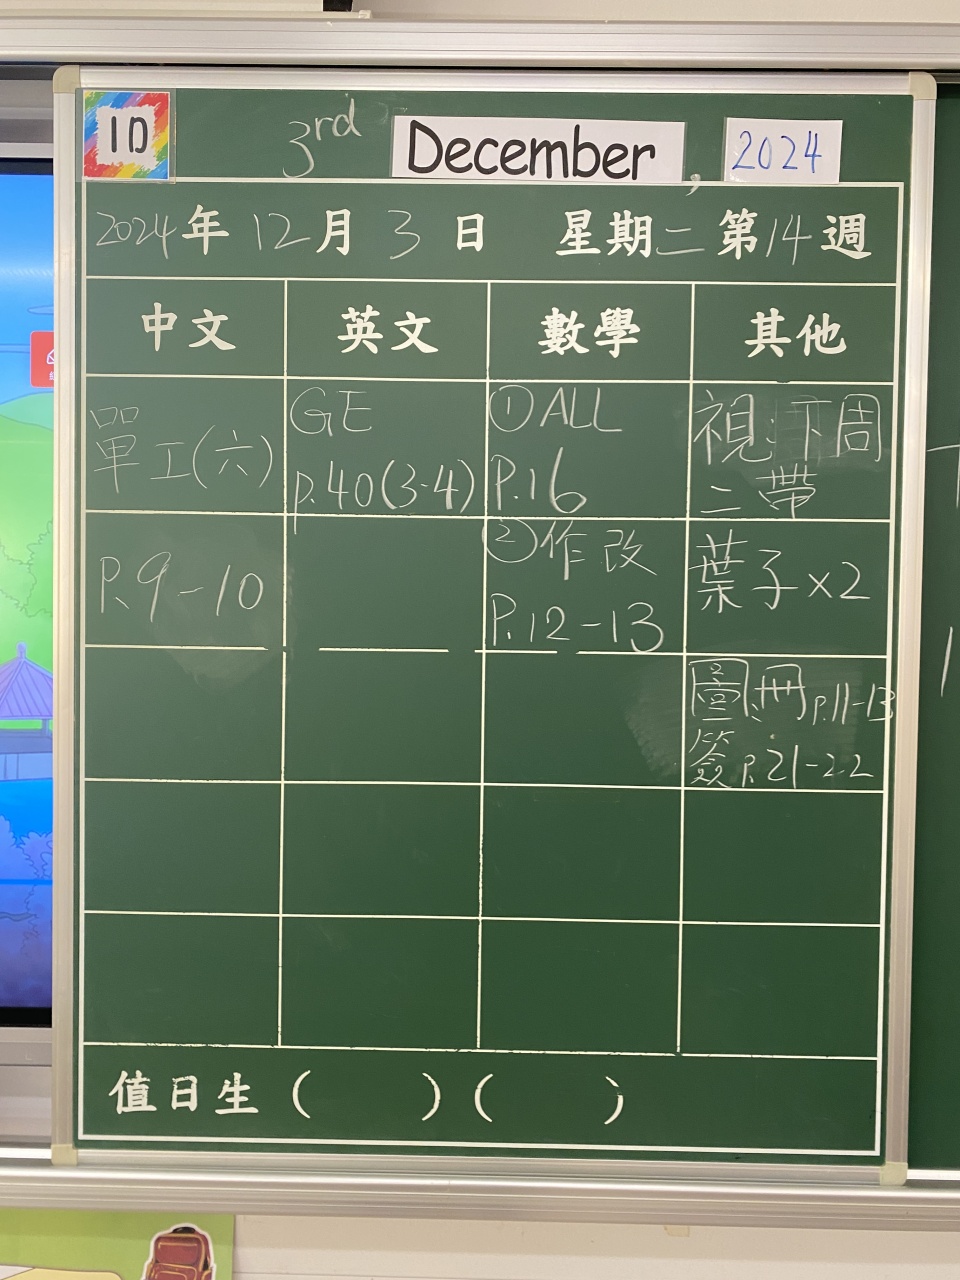 1D
3rd December, 2024
2024年 12月 3日 星期二 第14週
中文 英文 數學 其他
單工(六)
P.9-10
GE
p.40(3-4)
①ALL
P.16
②作改
P.12-13
視:下周
二帶
葉子x2
圖冊p.11-13
簽p.21-22
值日生 ( ) ( )